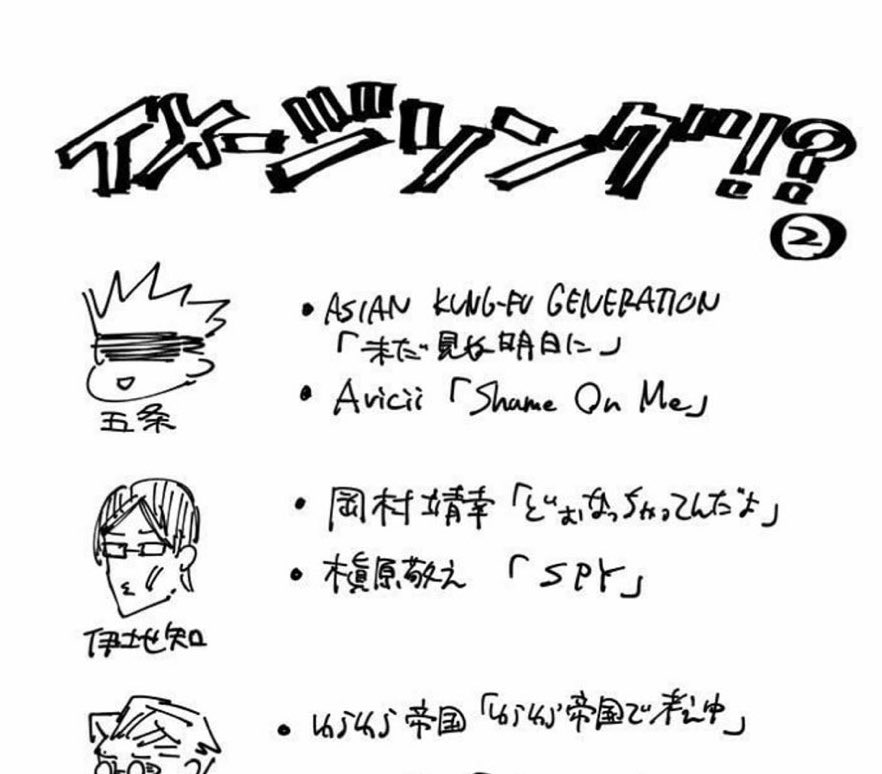 イメージソング!?
②
五条
• ASIAN KUNG-FU GENERATION
「未だ見ぬ明日に」
• Avicii 「Shame On Me」
伊地知
• 岡村靖幸「どぉなっちゃってんだよ」
• 槇原敬之 「SPY」
• ゆらゆら帝国「ゆらゆら帝国で考え中」